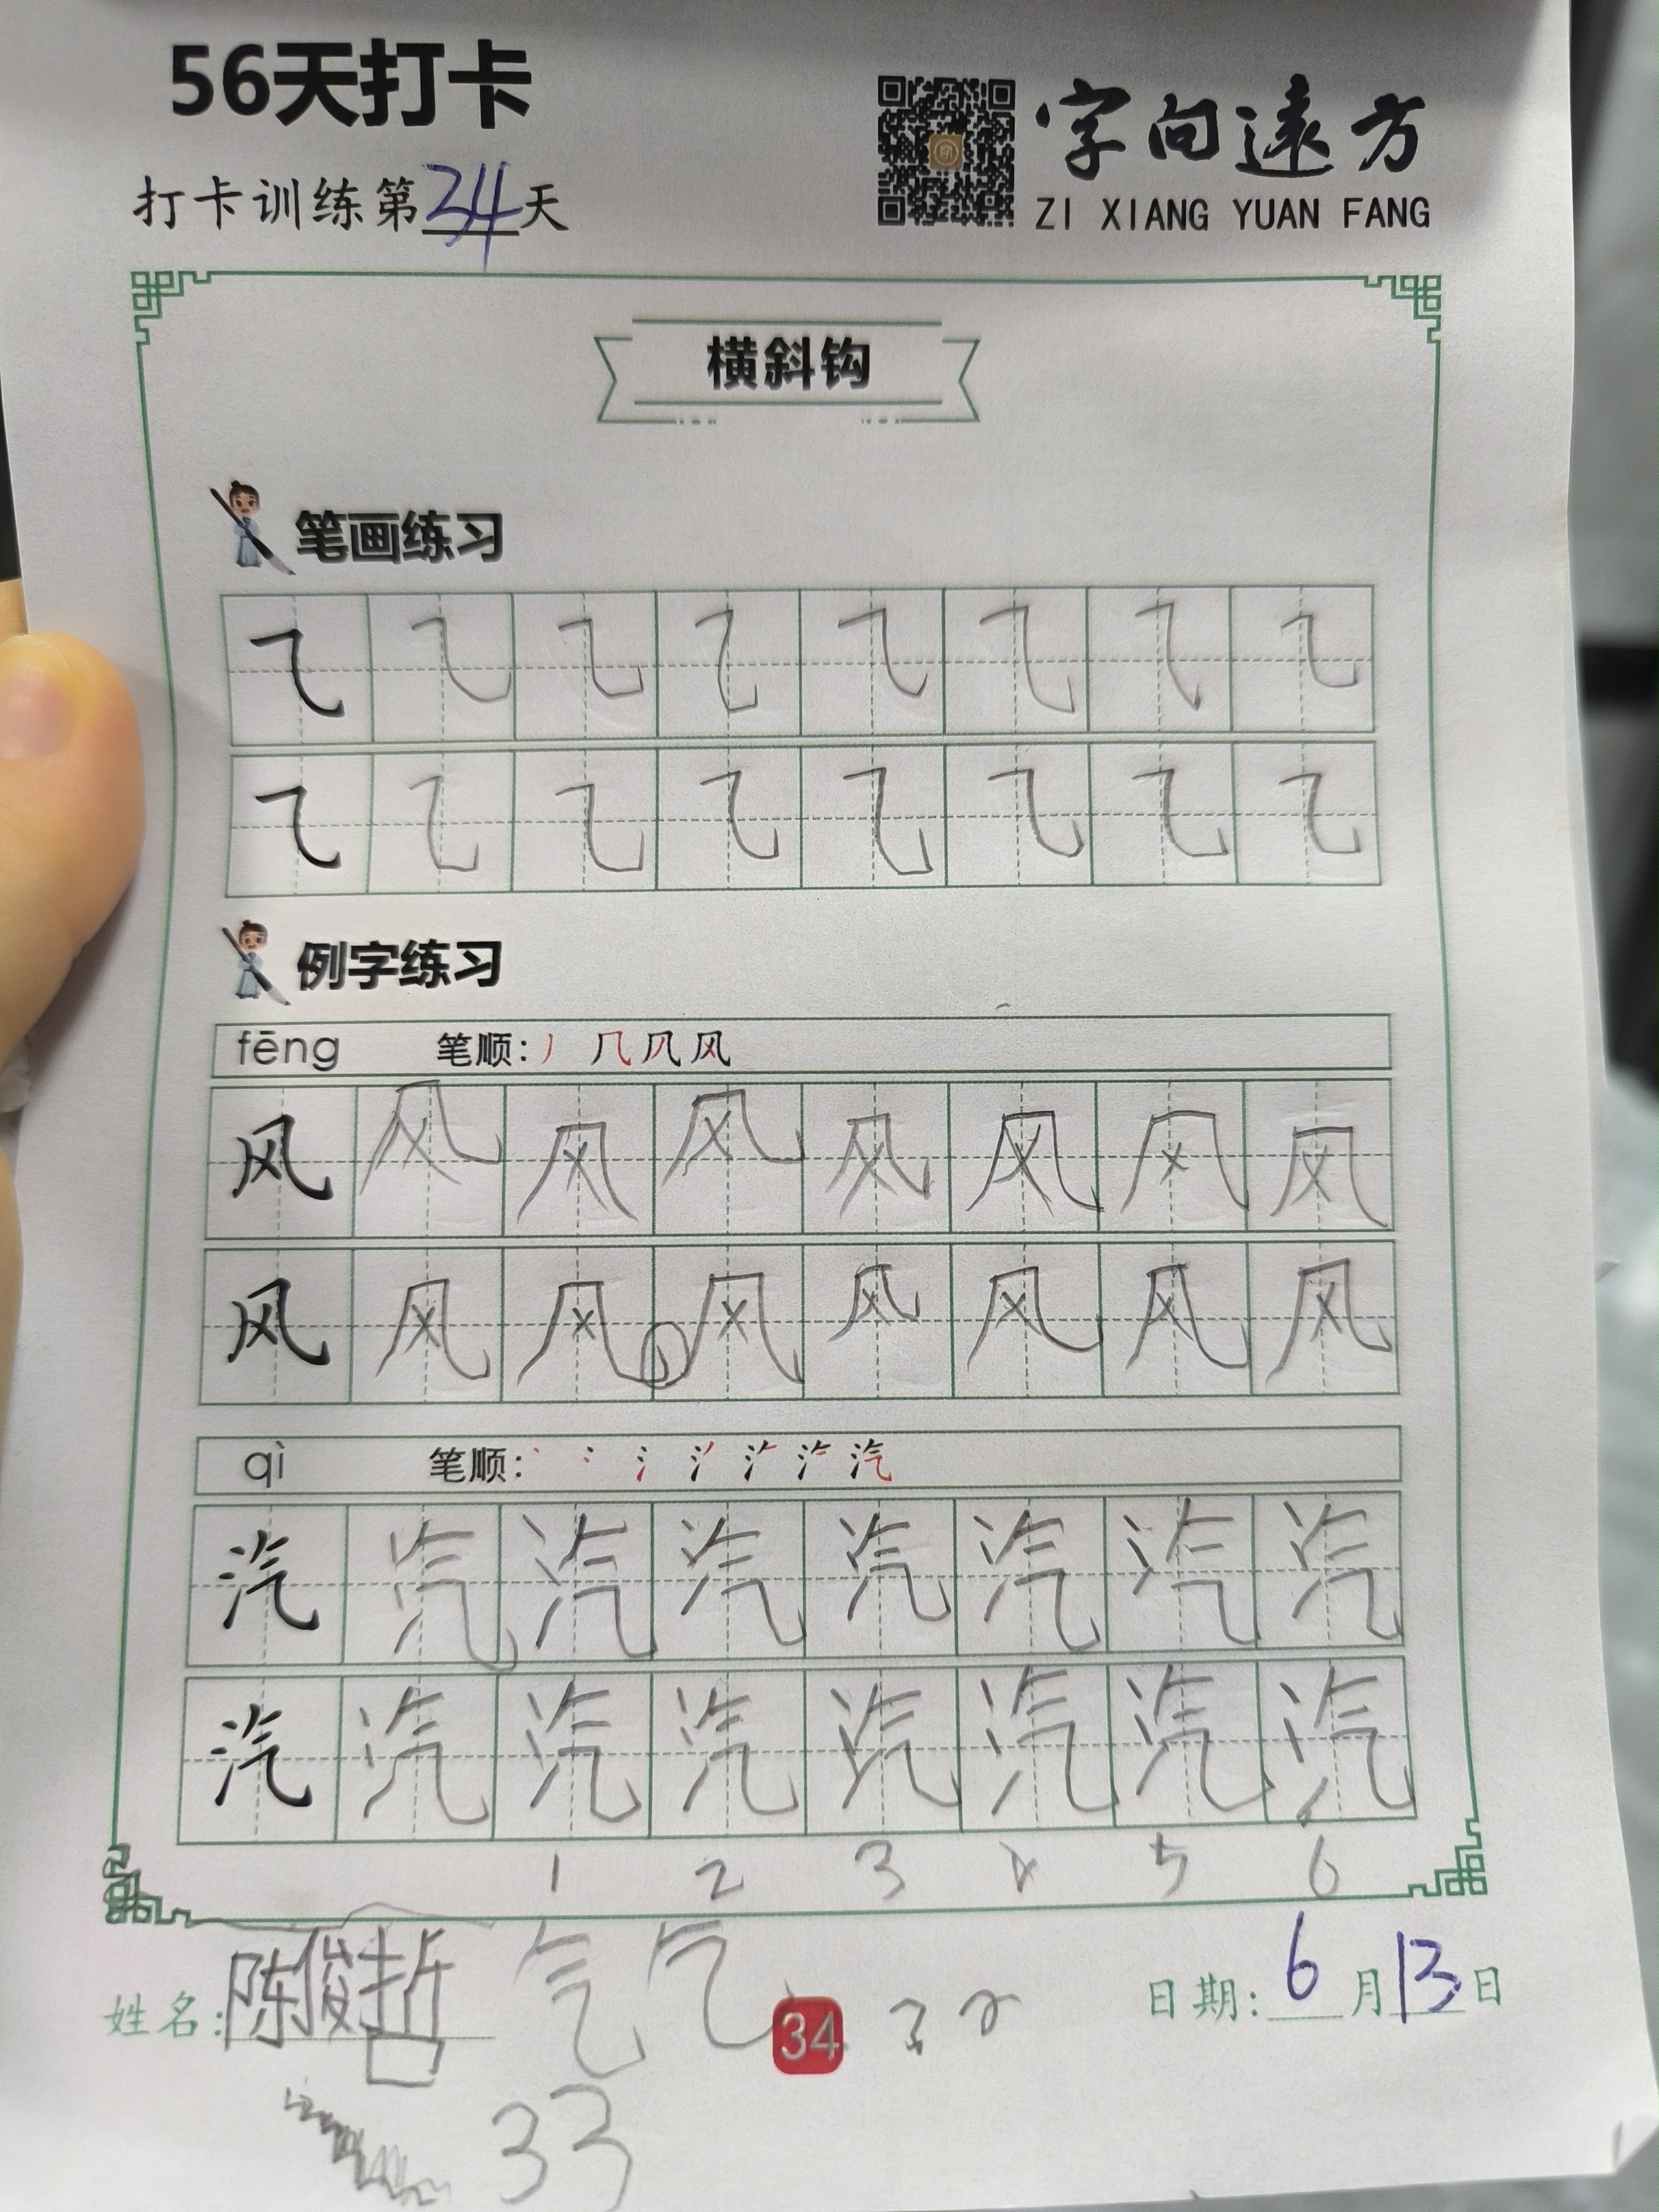 56天打卡
字向遠方
打卡训练第34天
ZI XIANG YUAN FANG
横斜钩
笔画练习
㇈ ㇈ ㇈ ㇈ ㇈ ㇈ ㇈ ㇈
㇈ ㇈ ㇈ ㇈ ㇈ ㇈ ㇈ ㇈
例字练习
fēng 笔顺: 丿 几 凤 风
风 风 风 风 风 风 风 风
风 风 风 风 风 风 风 风
qì 笔顺: 丶 冫 氵 汽
汽 汽 汽 汽 汽 汽 汽 汽
汽 汽 汽 汽 汽 汽 汽 汽
1 2 3 4 5 6
姓名: 陈俊哲 气 气 34 日期: 6月13日
33